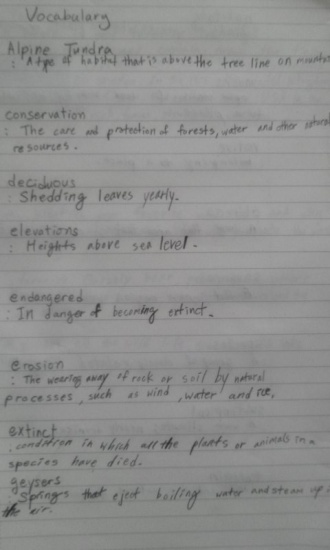 Vocabulary
Alpine Tundra
: A type of habitat that is above the tree line on mountain
conservation
: The care and protection of forests, water and other natural
resources.
deciduous
: Shedding leaves yearly.
elevations
: Heights above sea level.
endangered
: In danger of becoming extinct.
erosion
: The wearing away of rock or soil by natural
processes, such as wind, water and ice.
extinct
: condition in which all the plants or animals in a
species have died.
geysers
: Springs that eject boiling water and steam up
the air.